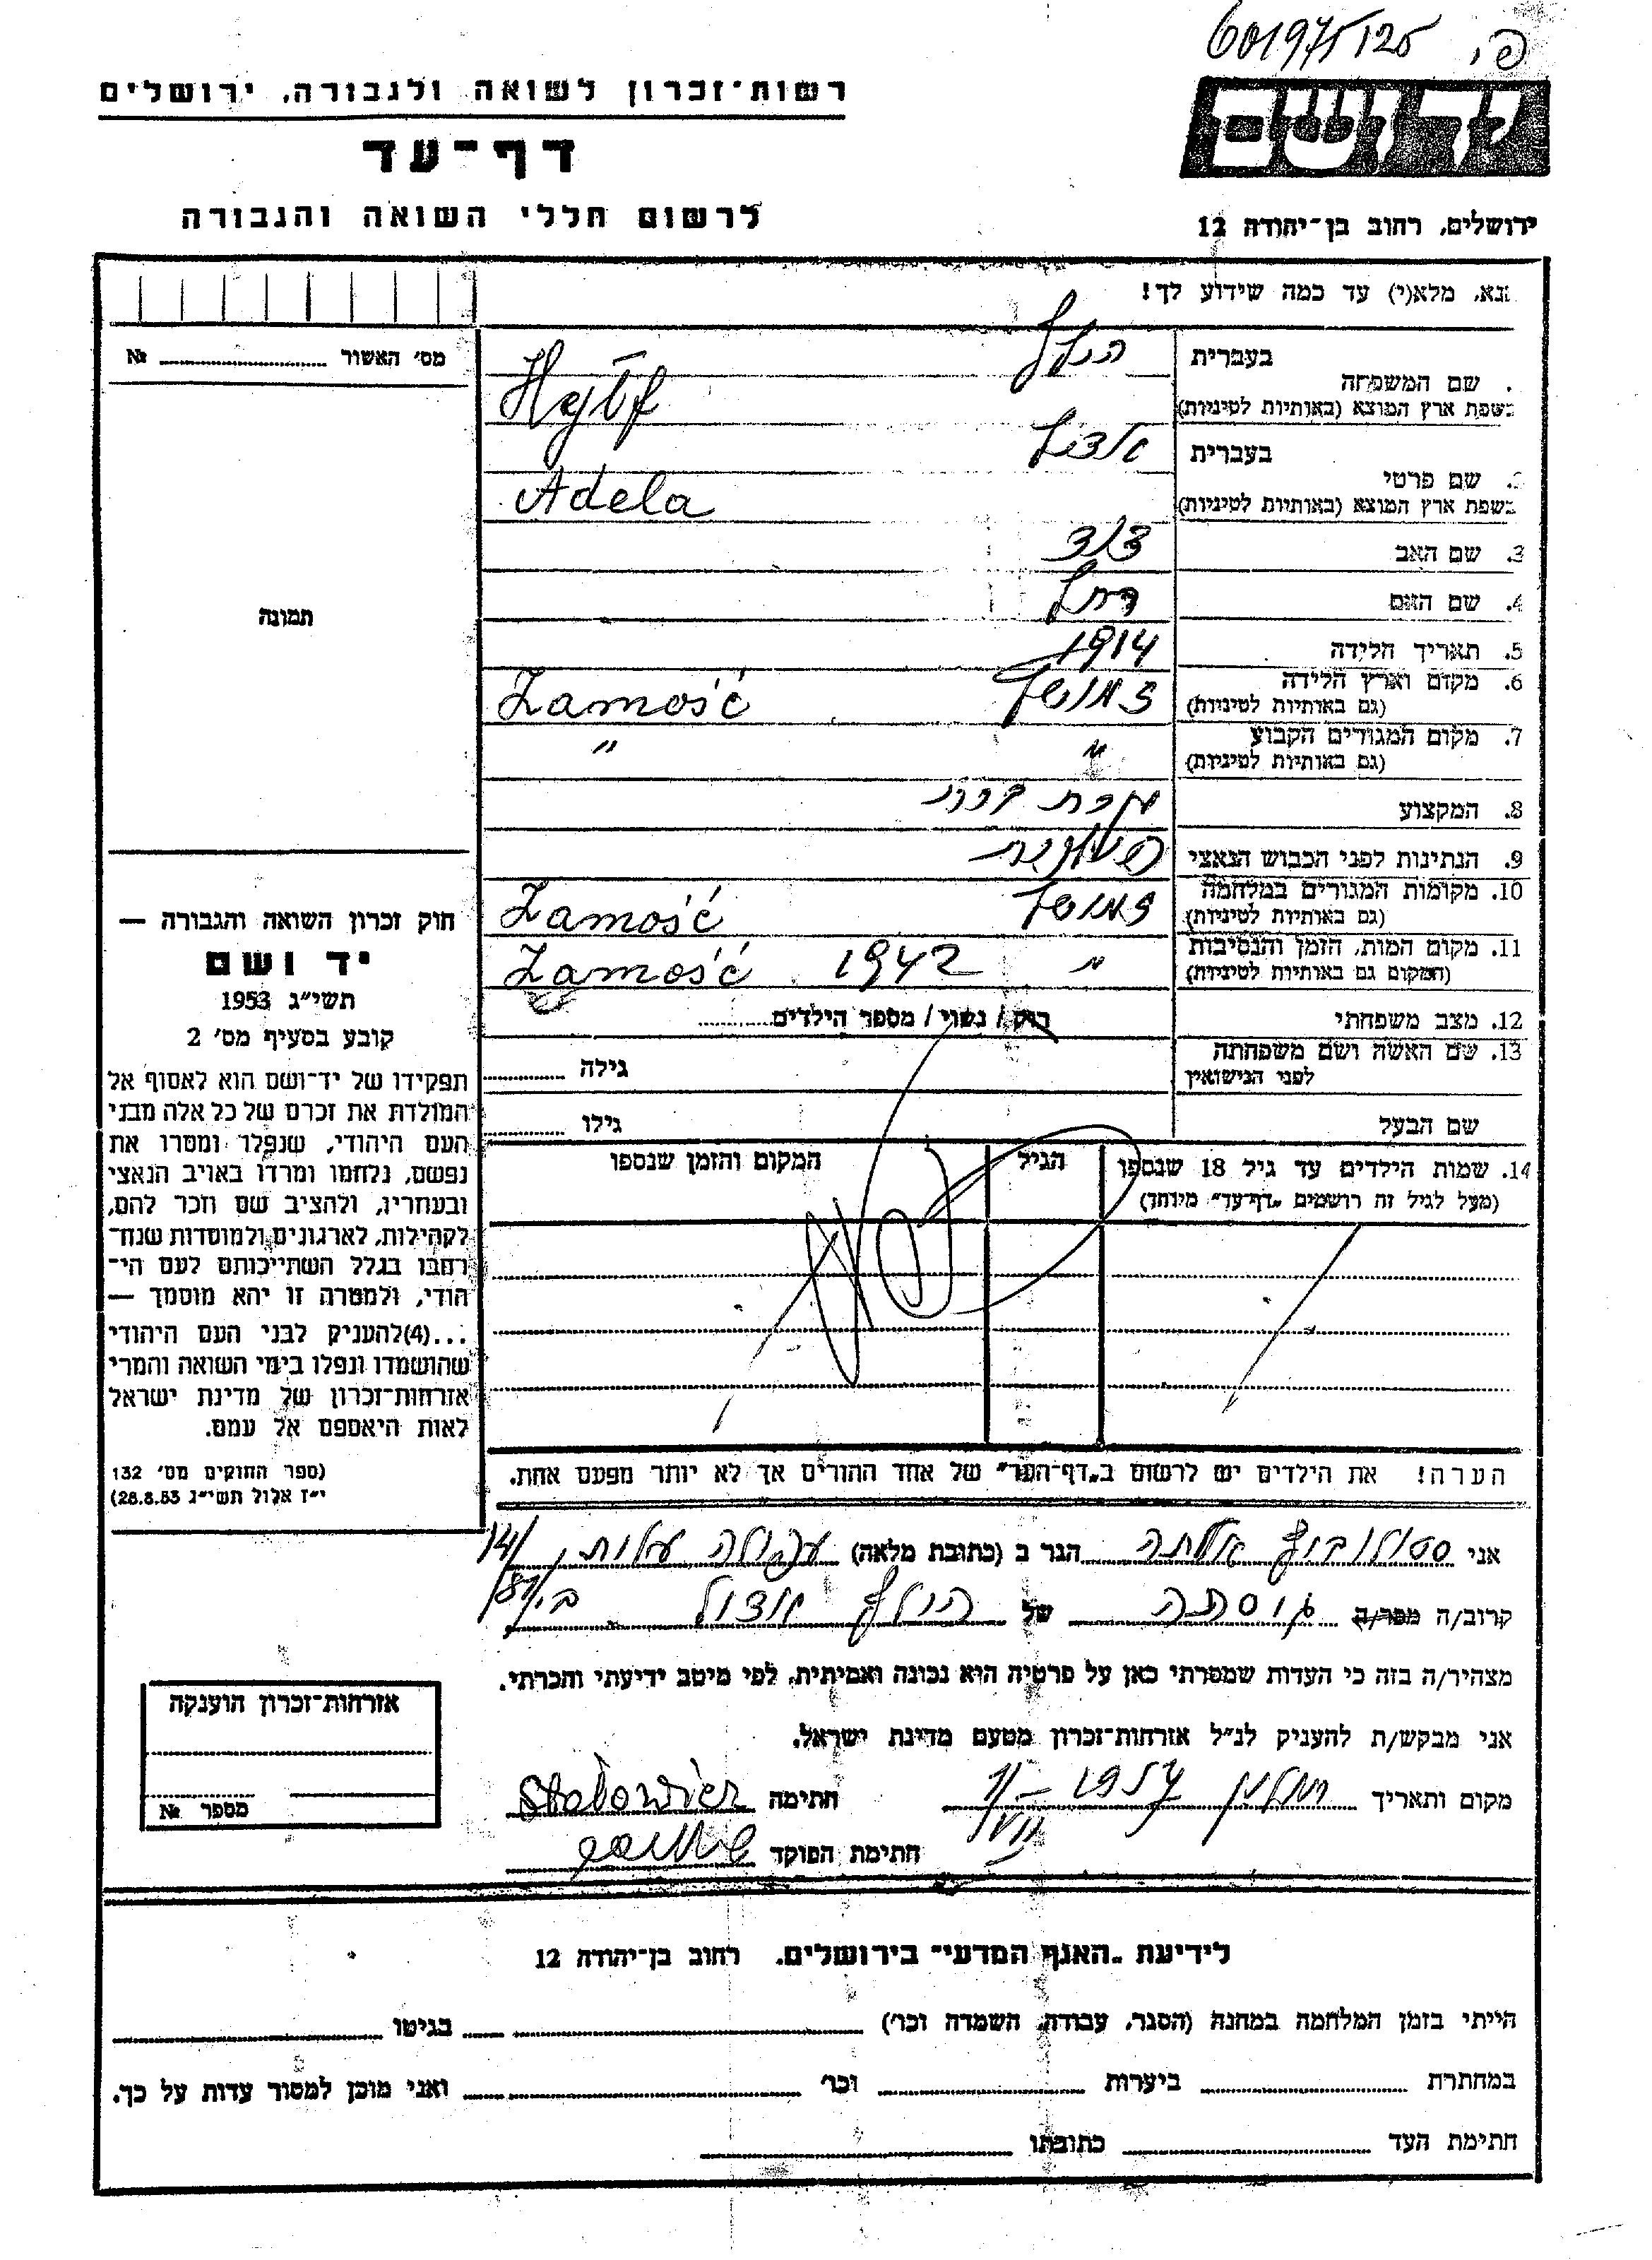 601975125 פ.
רשות־זכרון לשואה ולגבורה, ירושלים
דף־עד
לרשום חללי השואה והגבורה
יד ושם
ירושלים, רחוב בן־יהודה 12
נא, מלא(י) עד כמה שידוע לך!
מס׳ האשור № 
תמונה
חוק זכרון השואה והגבורה —
יד ושם
תשי״ג 1953
קובע בסעיף מס׳ 2
תפקידו של יד־ושם הוא לאסוף אל
המולדת את זכרם של כל אלה מבני
העם היהודי, שנפלו ומסרו את
נפשם, נלחמו ומרדו באויב הנאצי
ובעוזריו, ולהציב שם וזכר להם,
לקהילות, לארגונים ולמוסדות שנח־
רבו בגלל השתייכותם לעם הי־
הודי, ולמטרה זו יהא מוסמך —
...(4)להעניק לבני העם היהודי
שהושמדו ונפלו בימי השואה והמרי
אזרחות־זכרון של מדינת ישראל
לאות היאספם אל עמם.
(ספר החוקים מס׳ 132
י״ז אלול תשי״ג 28.8.53)
בעברית
שם המשפחה
בשפת ארץ המוצא (באותיות לטיניות)
בעברית
שם פרטי
בשפת ארץ המוצא (באותיות לטיניות) Adela
3. שם האב
4. שם האם רחל
5. תאריך הלידה 1914
6. מקום וארץ הלידה זמושץ Zamość
(גם באותיות לטיניות)
7. מקום המגורים הקבוע " "
(גם באותיות לטיניות)
8. המקצוע
9. הנתינות לפני הכבוש הנאצי
10. מקומות המגורים במלחמה זמושץ Zamość
(גם באותיות לטיניות)
11. מקום המות, הזמן והנסיבות " 1942 Zamość
(המקום גם באותיות לטיניות)
12. מצב משפחתי רוק / נשוי / מספר הילדים
13. שם האשה ושם משפחתה
לפני הנישואין גילה
שם הבעל גילו
14. שמות הילדים עד גיל 18 שנספו הגיל המקום והזמן שנספו
(מעל לגיל זה רושמים „דף־עד״ מיוחד)
הערה! את הילדים יש לרשום ב„דף־העד״ של אחד ההורים אך לא יותר מפעם אחת.
אני הגר ב (כתובת מלאה) 141/
קרוב/ה מכר/ה של
מצהיר/ה בזה כי העדות שמסרתי כאן על פרטיה היא נכונה ואמיתית, לפי מיטב ידיעתי והכרתי.
אני מבקש/ת להעניק לנ״ל אזרחות־זכרון מטעם מדינת ישראל.
מקום ותאריך 1957 חתימה
חתימת הפוקד
אזרחות־זכרון הוענקה
מספר №
לידיעת „האגף המדעי״ בירושלים. רחוב בן־יהודה 12
הייתי בזמן המלחמה במחנה (הסגר, עבודה, השמדה וכו׳) בגיטו
במחתרת ביערות וכו׳ ואני מוכן למסור עדות על כך.
חתימת העד כתובתו